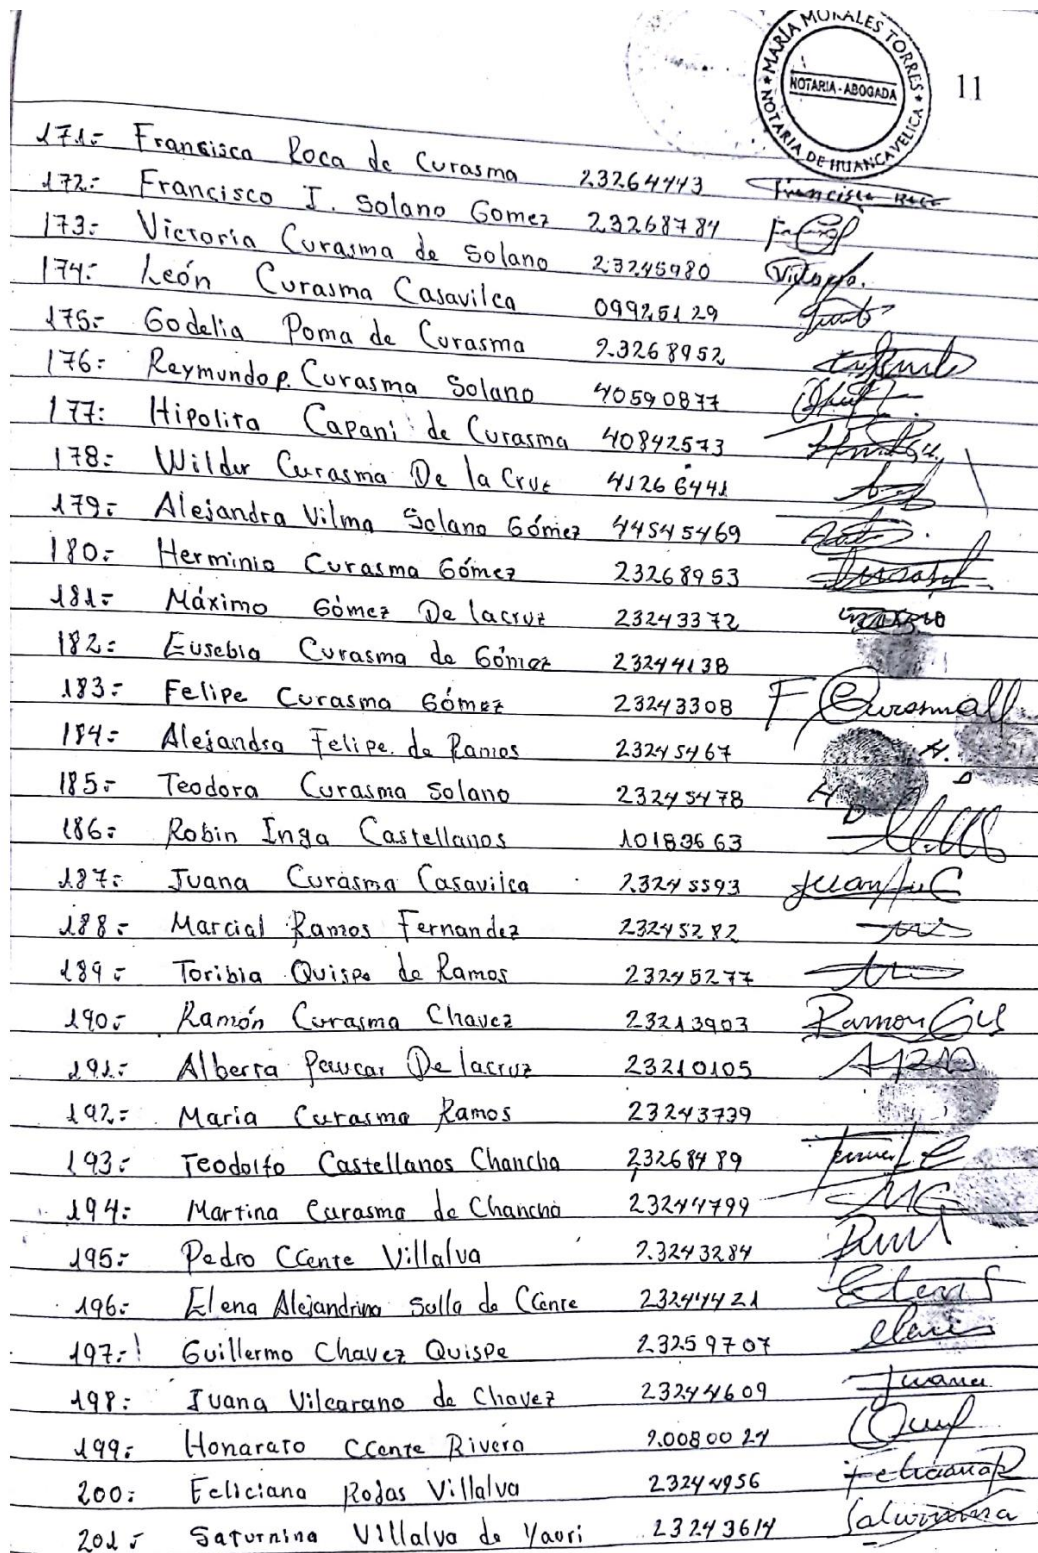 MARIA MORALES TORRES
NOTARIA - ABOGADA
NOTARIA DE HUANCAVELICA
11
171.- Francisca Roca de Curasma 23264443 Francisca Roca
172.- Francisco I. Solano Gomez 23268784
173.- Victoria Curasma de Solano 23245980
174.- León Curasma Casavilca 09925129
175.- Godelia Poma de Curasma 23268952
176.- Reymundo P. Curasma Solano 40590877
177.- Hipolita Capani de Curasma 40842573
178.- Wilder Curasma De la Cruz 41266441
179.- Alejandra Vilma Solano Gómez 44545469
180.- Herminio Curasma Gómez 23268953
181.- Máximo Gómez De lacruz 23243372
182.- Eusebia Curasma de Gómez 23244138
183.- Felipe Curasma Gómez 23243308
184.- Alejandra Felipe de Ramos 23245467
185.- Teodora Curasma Solano 23245478
186.- Robin Inga Castellanos 10183663
187.- Juana Curasma Casavilca 23245593
188.- Marcial Ramos Fernandez 23245282
189.- Toribia Quispe de Ramos 23245277
190.- Ramón Curasma Chavez 23213903 Ramon
191.- Alberta Paucar De lacruz 23210105
192.- Maria Curasma Ramos 23243739
193.- Teodolfo Castellanos Chancha 23268489
194.- Martina Curasma de Chancha 23244799 MG
195.- Pedro CCente Villalva 23243284
196.- Elena Alejandrina Sulla de CCente 23244421
197.- Guillermo Chavez Quispe 23259707
198.- Juana Vilcarano de Chavez 23244609 Juana
199.- Honarato CCente Rivera 20080024
200.- Feliciana Rojas Villalva 23244956 Feliciana R
201.- Saturnina Villalva de Yauri 23243614 Saturnina